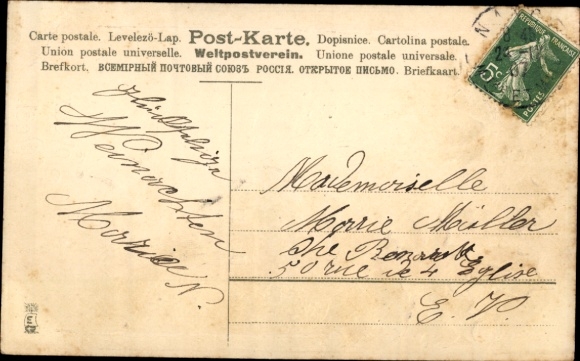 Carte postale. Levelezö-Lap. Post-Karte. Dopisnice. Cartolina postale.
Union postale universelle. Weltpostverein. Unione postale universale.
Brefkort. ВСЕМІРНЫЙ ПОЧТОВЫЙ СОЮЗЪ РОССІЯ. ОТКРЫТОЕ ПИСЬМО. Briefkaart.
5c
POSTES
Glückseliga
Weinachten
Morrice N.
Mademoiselle
Morrie Müller
Che
50 rue de 4 Eglise
E. V.